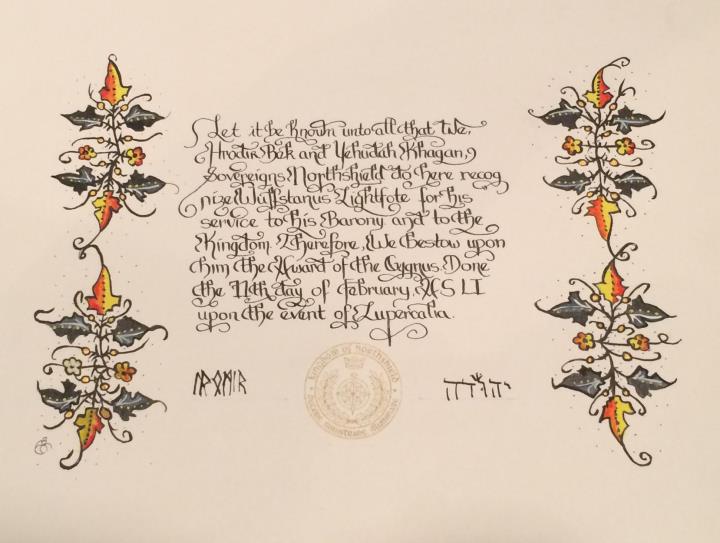 Let it be known unto all that We,
Hrodir Bak and Yehudah Khagan,
Sovereigns Northshield do here recog
nize Wulfstanus Lightfote for his
service to his Barony and to the
Kingdom. Therefore, We Bestow upon
him the Award of the Cygnus. Done
the 11th day of February, AS LI
upon the event of Lupercalia.
Kingdom of Northshield
יהודה